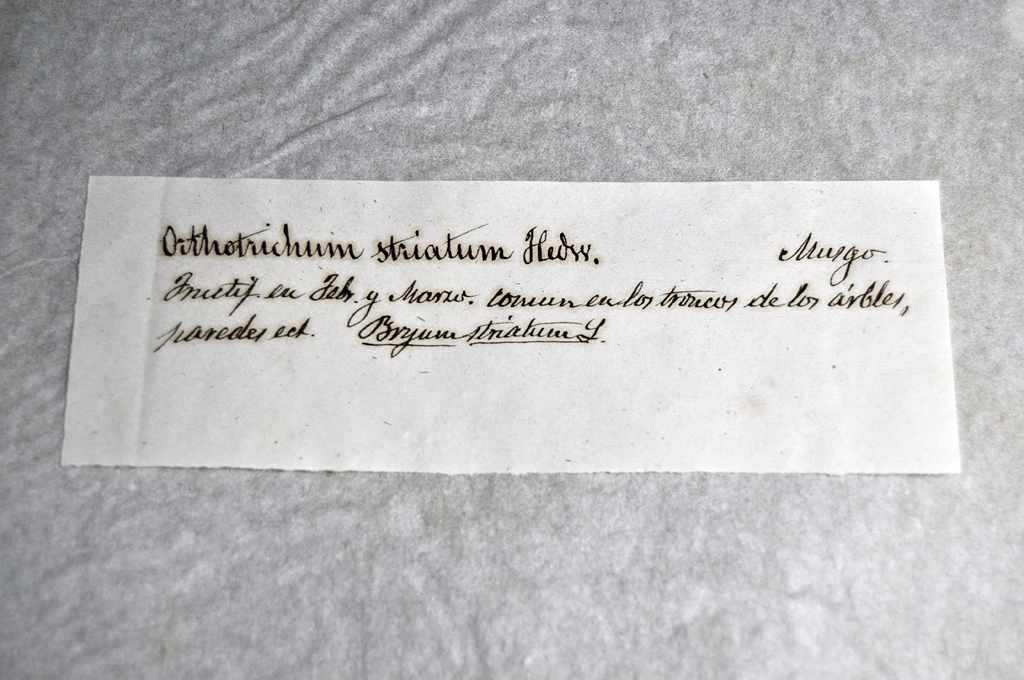 Orthotrichum striatum Hedw. Musgo.
Fructif en Febr. y Marzo. comun en los troncos de los árbles,
paredes ect. Bryum striatum L.